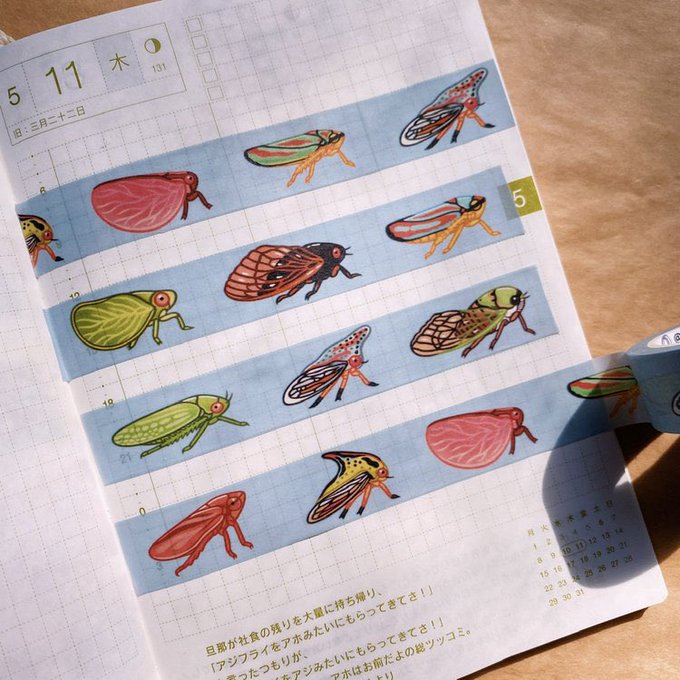 5 11 木
131
旧：三月二十二日
6
12
18
21
0
3
5
@
月 火 水 木 金 土 日
1 2 3 4 5 6 7
8 9 10 11 12 13 14
15 16 17 18 19 20 21
22 23 24 25 26 27 28
29 30 31
旦那が社食の残りを大量に持ち帰り、
「アジフライをアホみたいにもらってきてさ！」
言ったつもりが、
をアジみたいにもらってきてさ！」
アホはお前だよの総ツッコミ。
より